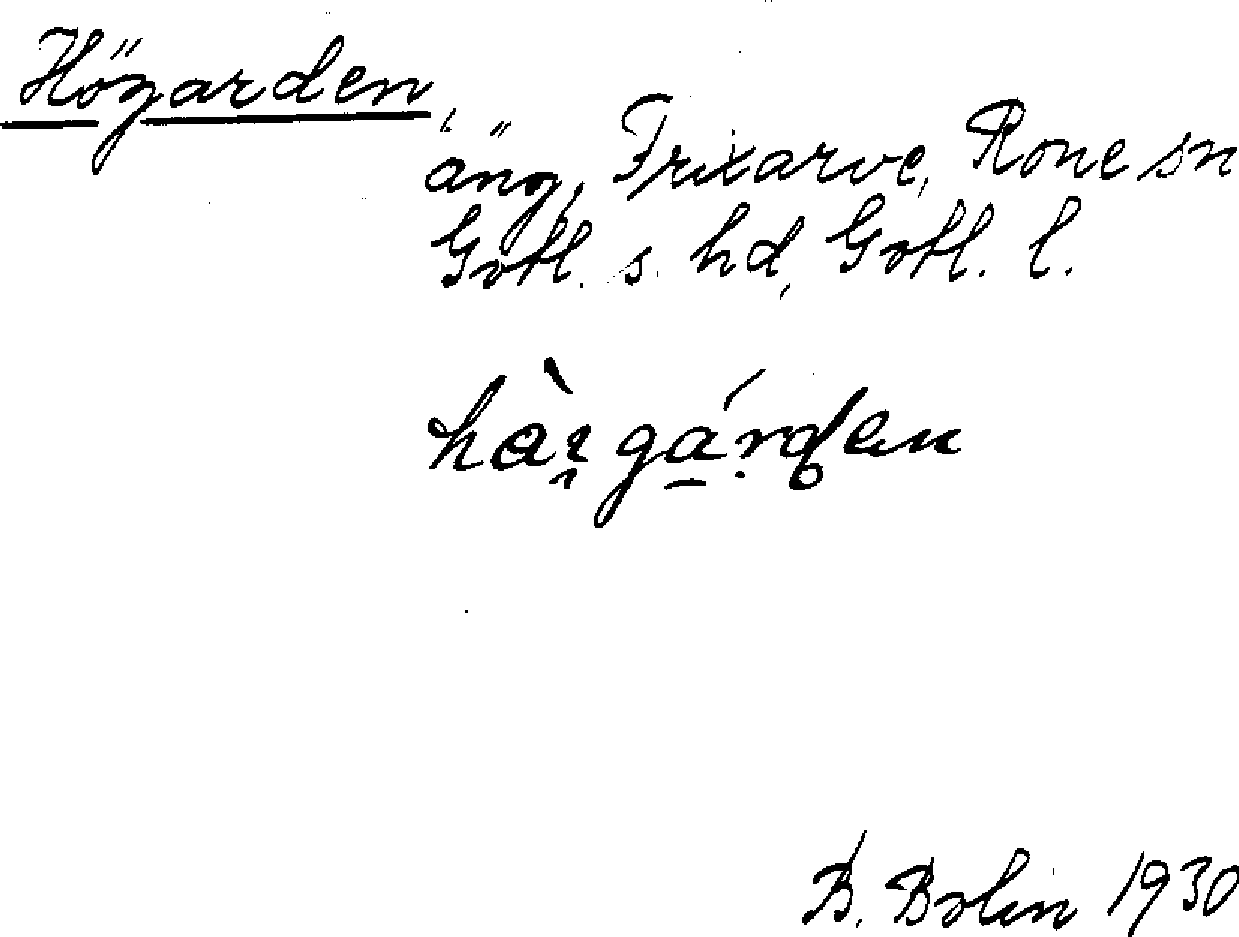 Högarden,
äng, Frixarve, Rone sn
Gotl. s. hd, Gotl. l.
B. Bolin 1930